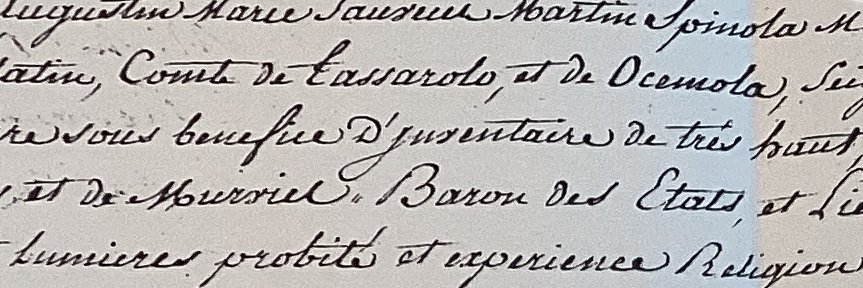 Augustin Marie Laurent Martin Spinola M
latin, Comte de tassarolo, et de Ocemola, Seig
re sous benefice D'juventaire de trés haut,
, et de Murviel. Baron des Etats, et Lie
t lumieres probité et experience Religion